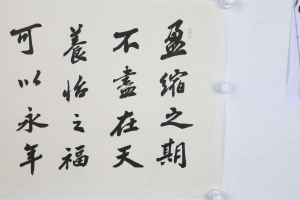 盈缩之期
不盡在天
養怡之福
可以永年